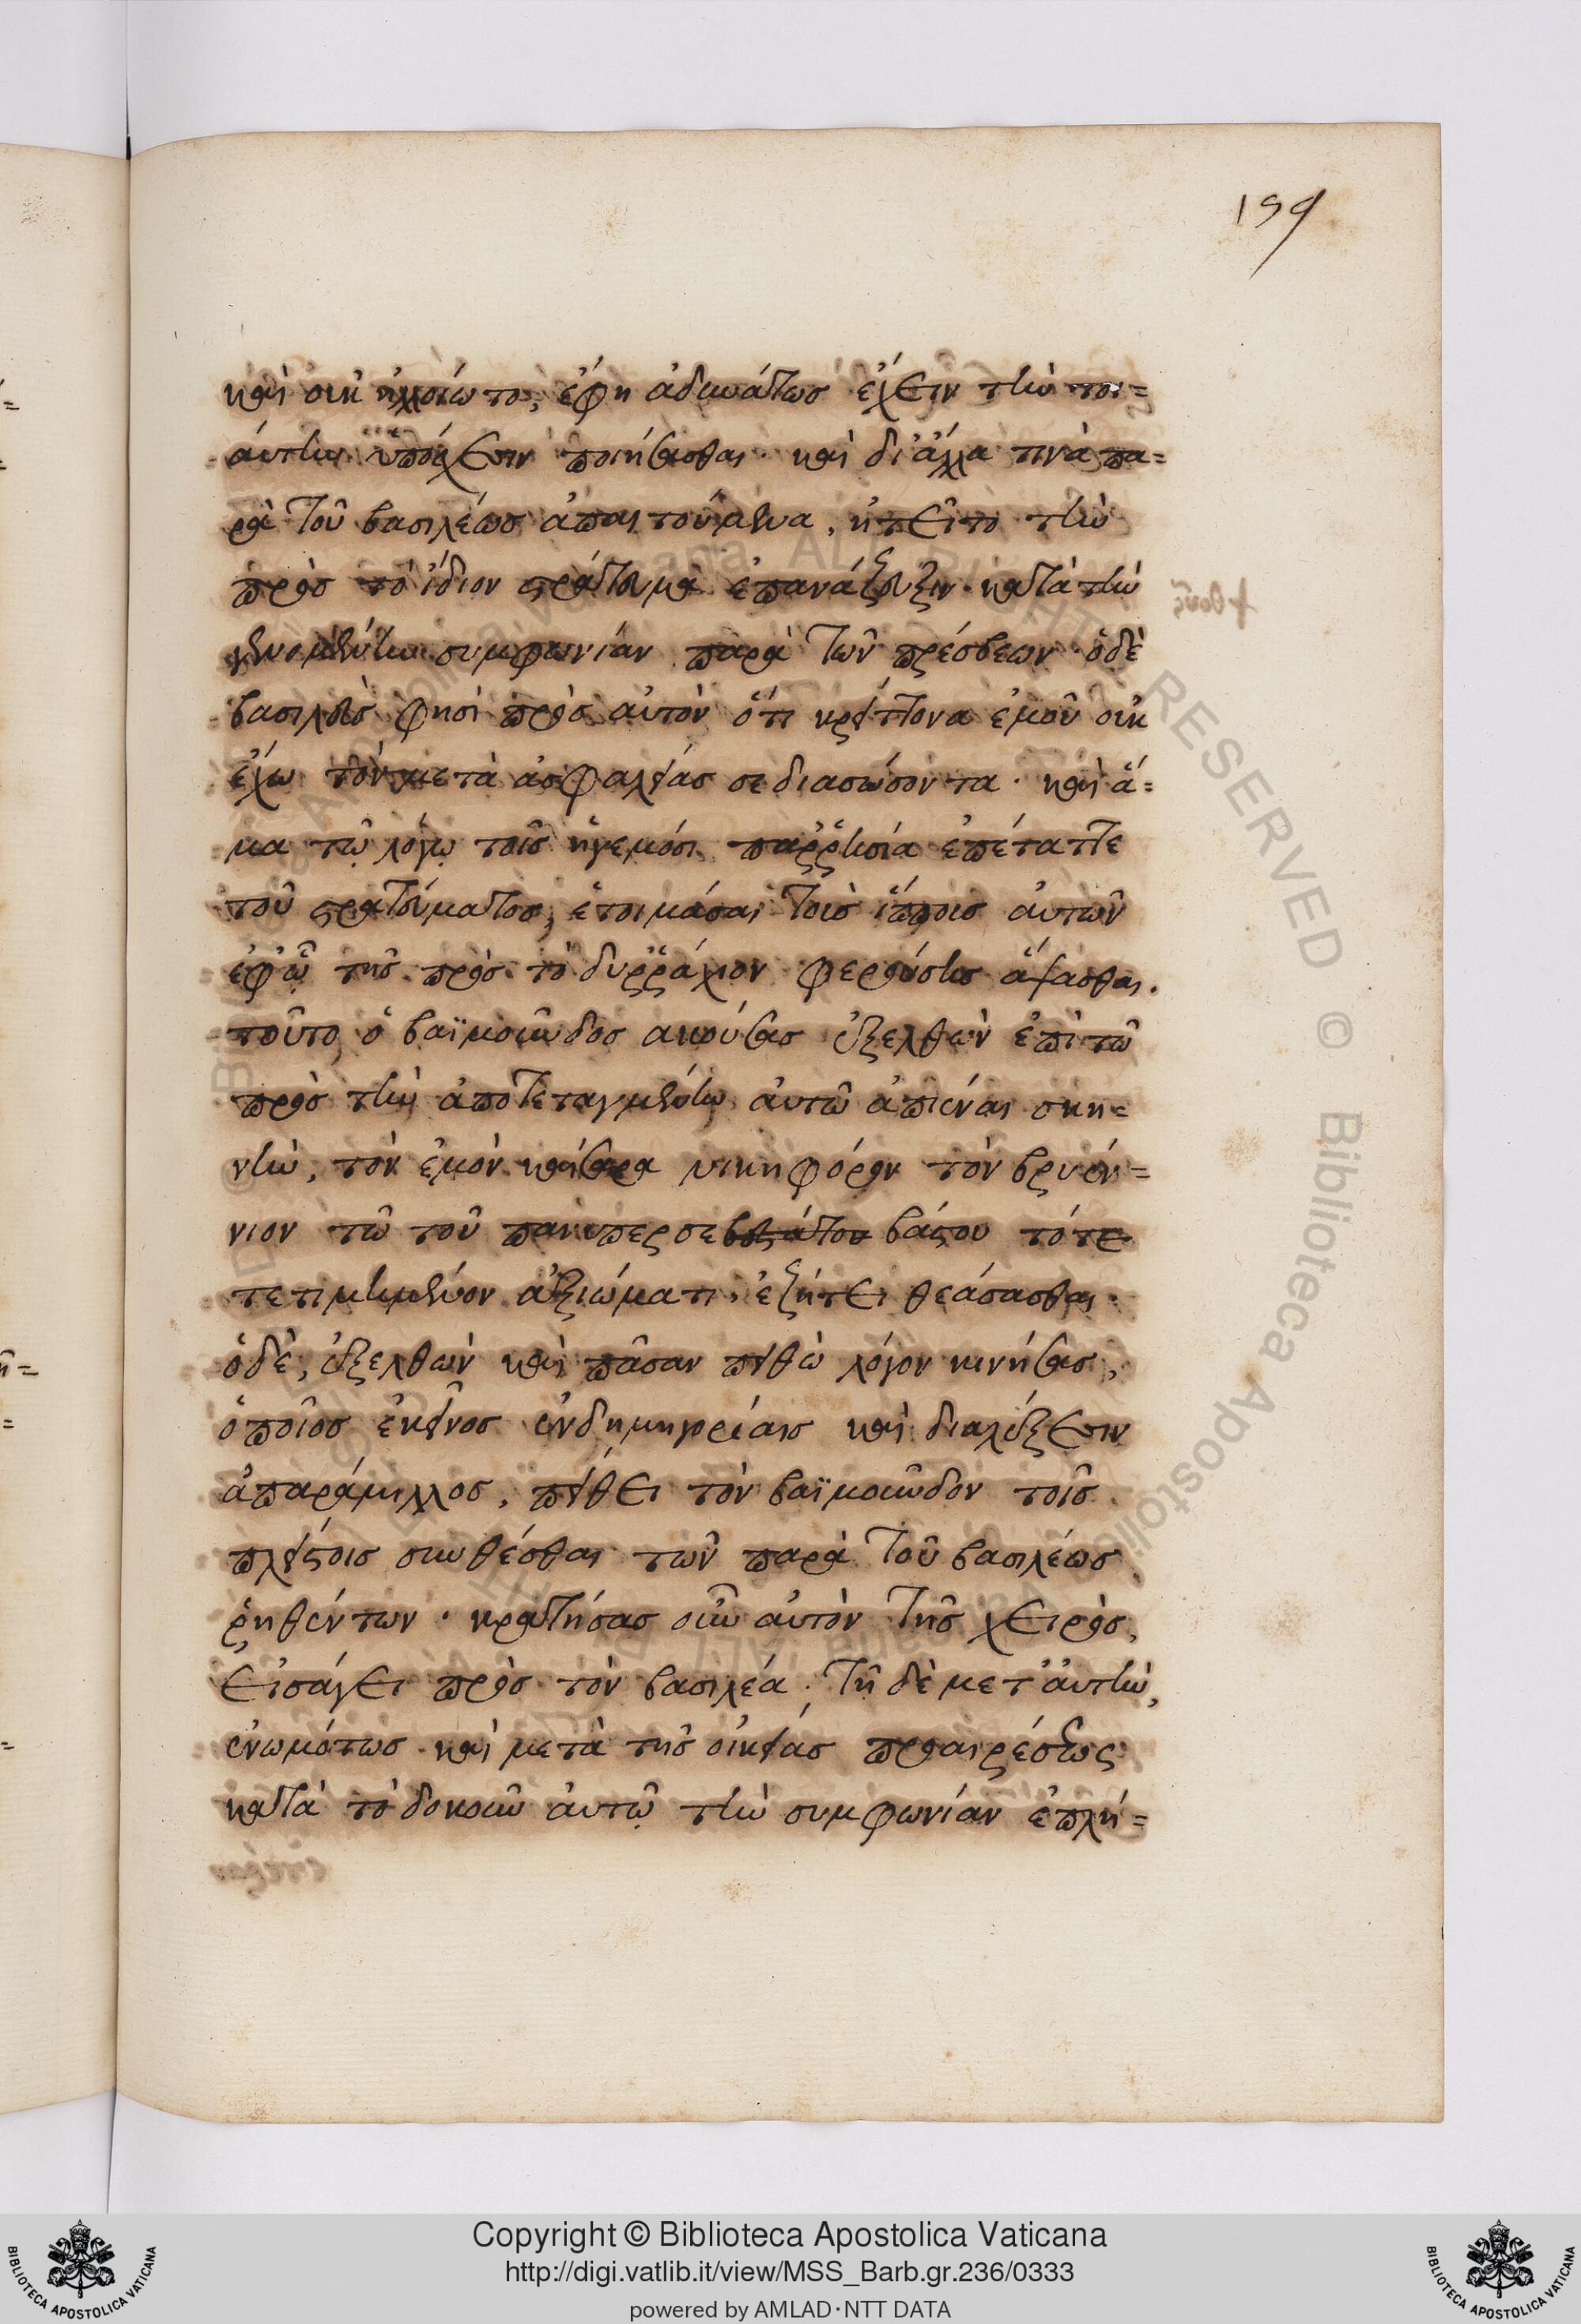 199
καὶ οὐκ ἠλλοίωτο, ἔφη ἀδυνάτως ἔχειν τὴν τοι=
αύτην ὑπόσχεσιν ποιήσασθαι· καὶ δι' ἄλλα τινὰ πα=
ρὰ τοῦ βασιλέως ἀπαιτούμενα, ἠτεῖτο τὴν
πρὸς τὸ ἴδιον στράτευμα ἐπανάζευξιν κατὰ τὴν
γενομένην συμφωνίαν παρὰ τῶν πρέσβεων· ὁ δὲ
βασιλεὺς φησὶ πρὸς αὐτὸν ὅτι κρείττονα ἐμοῦ οὐκ
ἔχω τὸν μετὰ ἀσφαλείας σε διασώσοντα· καὶ ἅ=
μα τῷ λόγῳ τοῖς ἡγεμόσι παρρησία ἐπέταττε
τοῦ στρατεύματος, ἑτοιμάσαι τοὺς ἵππους αὐτῶν
ἐφ' ᾧ τῆς πρὸς τὸ δυρράχιον φερούσης ἅψασθαι.
τοῦτο ὁ βαϊμοῦνδος ἀκούσας ἐξελθὼν ἐπὶ τῶ
πρὸς τὴν ἀποτεταγμένην αὐτῶ ἀπιέναι σκη=
νὴν, τὸν ἐμὸν καίσαρα νικηφόρον τὸν βρυέν=
νιον τῶ τοῦ πανυπερσεβάστου τότε
τετιμημένον ἀξιώματι, ἐζήτει θεάσασθαι·
ὁ δὲ, ἐξελθὼν καὶ πᾶσαν πειθὼ λόγον κινήσας,
ὁποῖος ἐκεῖνος ἐν δημηγορίαις καὶ διαλέξεσιν
ἀπαράμιλλος, πείθει τὸν βαϊμοῦνδον τοῖς
πλείστοις συνθέσθαι τῶν παρὰ τοῦ βασιλέως
ῥηθέντων· κρατήσας οὖν αὐτὸν τῆς χειρὸς,
εἰσάγει πρὸς τὸν βασιλέα· τῆ δὲ μετ' αὐτὴν,
ἐνωμότως καὶ μετὰ τῆς οἰκείας προαιρέσεως
κατὰ τὸ δοκοῦν αὐτῷ τὴν συμφωνίαν ἐπλή=
Copyright © Biblioteca Apostolica Vaticana
http://digi.vatlib.it/view/MSS_Barb.gr.236/0333
powered by AMLAD·NTT DATA
BIBLIOTECA APOSTOLICA VATICANA
BIBLIOTECA APOSTOLICA VATICANA